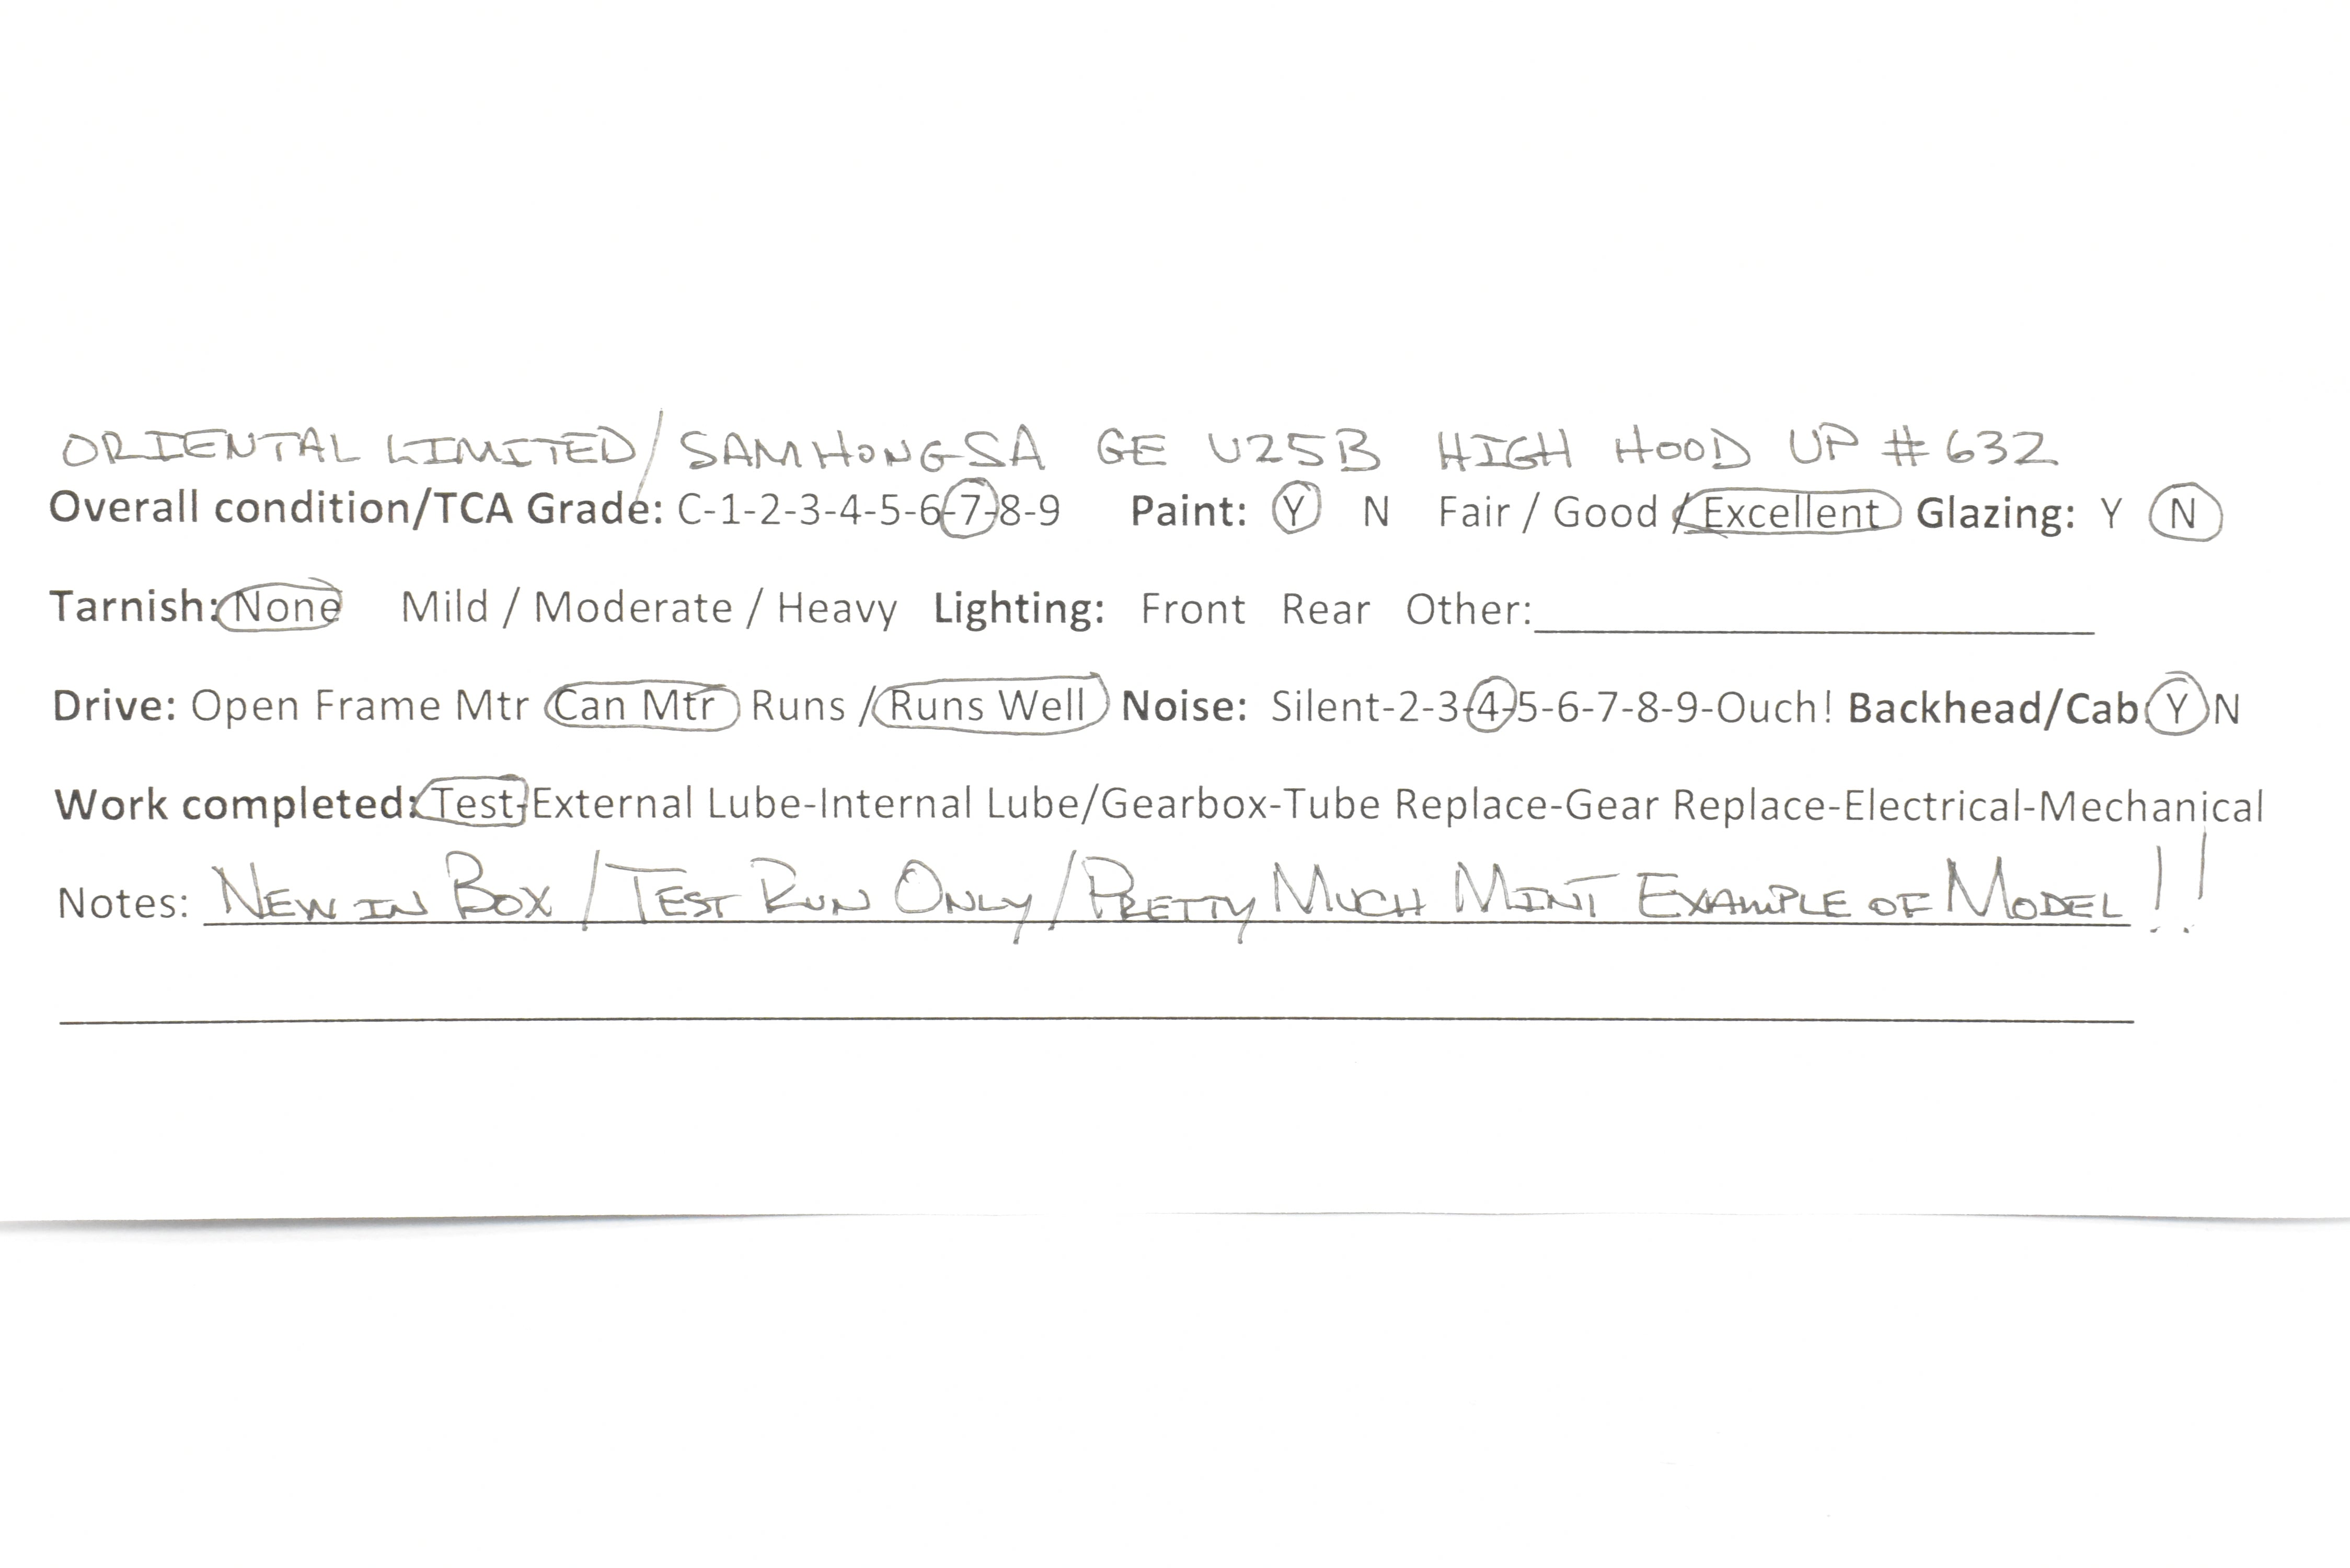 ORIENTAL LIMITED/SAMHONGSA GE U25B HIGH HOOD UP #632
Overall condition/TCA Grade: C-1-2-3-4-5-6-7-8-9 Paint: Y N Fair / Good / Excellent Glazing: Y N
Tarnish: None Mild / Moderate / Heavy Lighting: Front Rear Other:
Drive: Open Frame Mtr Can Mtr Runs / Runs Well Noise: Silent-2-3-4-5-6-7-8-9-Ouch! Backhead/Cab Y N
Work completed: Test-External Lube-Internal Lube/Gearbox-Tube Replace-Gear Replace-Electrical-Mechanical
Notes: NEW IN BOX / TEST RUN ONLY / PRETTY MUCH MINT EXAMPLE OF MODEL!!